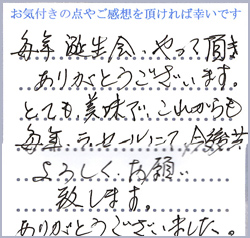 お気付きの点やご感想を頂ければ幸いです
毎年誕生会、やって頂き
ありがとうございます。
とても美味で、これからも
毎年ラ・セールにて
よろしくお願い
致します。
ありがとうございました。